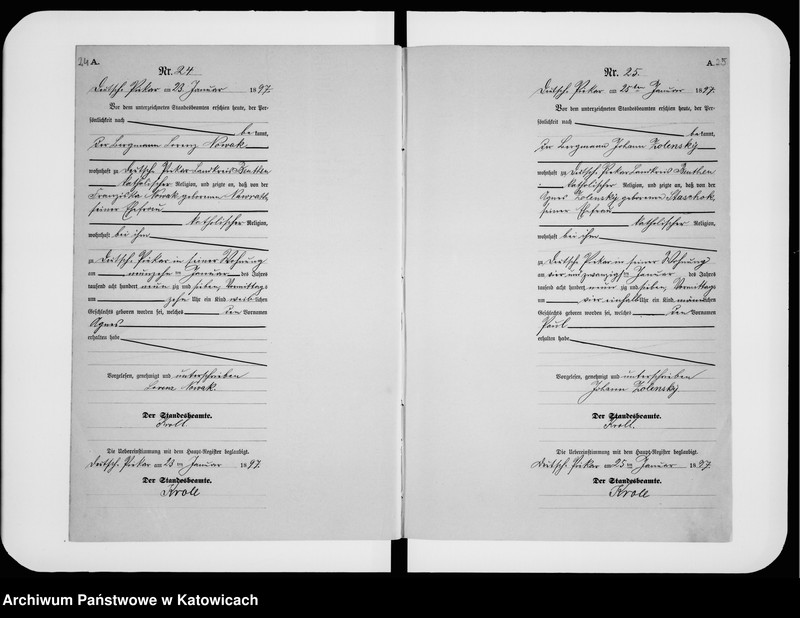 24
A.
Nr. 24
Deutsch Piekar am 23. Januar 1897.
Vor dem unterzeichneten Standesbeamten erschien heute, der Per-
sönlichkeit nach
bekannt,
Der Bergmann Lorenz Nowak
wohnhaft zu Deutsch Piekar Landkreis Beuthen
katholischer Religion, und zeigte an, daß von der
Franziska Nowak geborenen
seiner Ehefrau
katholischer Religion,
wohnhaft bei ihm
zu Deutsch Piekar in seiner Wohnung
am Januar des Jahres
tausend acht hundert neun zig und sieben, Vormittags
um zehn Uhr ein Kind weiblichen
Geschlechts geboren worden sei, welches den Vornamen
Agnes
erhalten habe
Vorgelesen, genehmigt und unterschrieben
Lorenz Nowak.
Der Standesbeamte.
Kroll
Die Uebereinstimmung mit dem Haupt-Register beglaubigt.
Deutsch Piekar am 23ten Januar 1897.
Der Standesbeamte.
Kroll
A.
25
Nr. 25.
Deutsch Piekar am 25ten Januar 1897.
Vor dem unterzeichneten Standesbeamten erschien heute, der Per-
sönlichkeit nach
bekannt,
Der Bergmann Johann Zolensky
wohnhaft zu Deutsch Piekar Landkreis Beuthen
katholischer Religion, und zeigte an, daß von der
Agnes Zolensky geborenen Staschok,
seiner Ehefrau
katholischer Religion,
wohnhaft bei ihm
zu Deutsch Piekar in seiner Wohnung
am vier und zwanzigsten Januar des Jahres
tausend acht hundert neun zig und sieben, Vormittags
um vier einhalb Uhr ein Kind männlichen
Geschlechts geboren worden sei, welches den Vornamen
Paul
erhalten habe
Vorgelesen, genehmigt und unterschrieben
Johann Zolensky
Der Standesbeamte.
Kroll.
Die Uebereinstimmung mit dem Haupt-Register beglaubigt.
Deutsch Piekar am 25ten Januar 1897.
Der Standesbeamte.
Kroll
Archiwum Państwowe w Katowicach